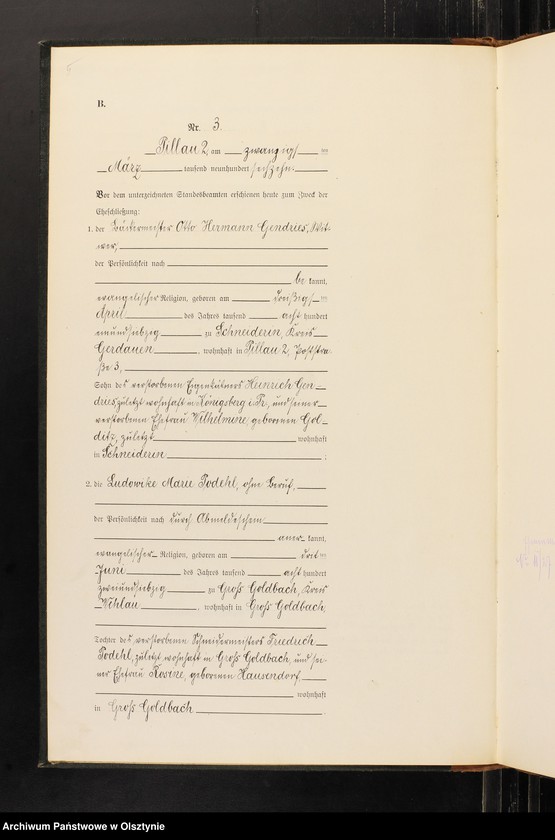 B.
Nr. 3.
Pillau 2, am zwanzigsten
März tausend neunhundert sechzehn
Vor dem unterzeichneten Standesbeamten erschienen heute zum Zweck der
Eheschließung:
1. der Bäckermeister Otto Hermann Gendries, Wit-
wer,
der Persönlichkeit nach
be kannt,
evangelischer Religion, geboren am dreißigsten
April des Jahres tausend acht hundert
neunundsiebzig zu Schneiderin, Kreis
Gerdauen, wohnhaft in Pillau 2, Poststra-
ße 3,
Sohn des verstorbenen Eigenkätners Heinrich Gen-
dries, zuletzt wohnhaft in Königsberg i/Pr, und seiner
verstorbenen Ehefrau Wilhelmine, geborenen Gol-
ditz, zuletzt wohnhaft
in Schneiderin ;
2. die Ludowike Marie Podehl, ohne Beruf,
der Persönlichkeit nach durch Abmeldeschein
aner kannt,
evangelischer Religion, geboren am dritten
Juni des Jahres tausend acht hundert
zweiundsiebzig zu Groß Goldbach, Kreis
Wehlau, wohnhaft in Groß Goldbach,
Tochter des verstorbenen Schneidermeisters Friedrich
Podehl, zuletzt wohnhaft in Groß Goldbach, und sei-
ner Ehefrau Rosine, geborenen Hausendorf,
wohnhaft
in Groß Goldbach .
Archiwum Państwowe w Olsztynie